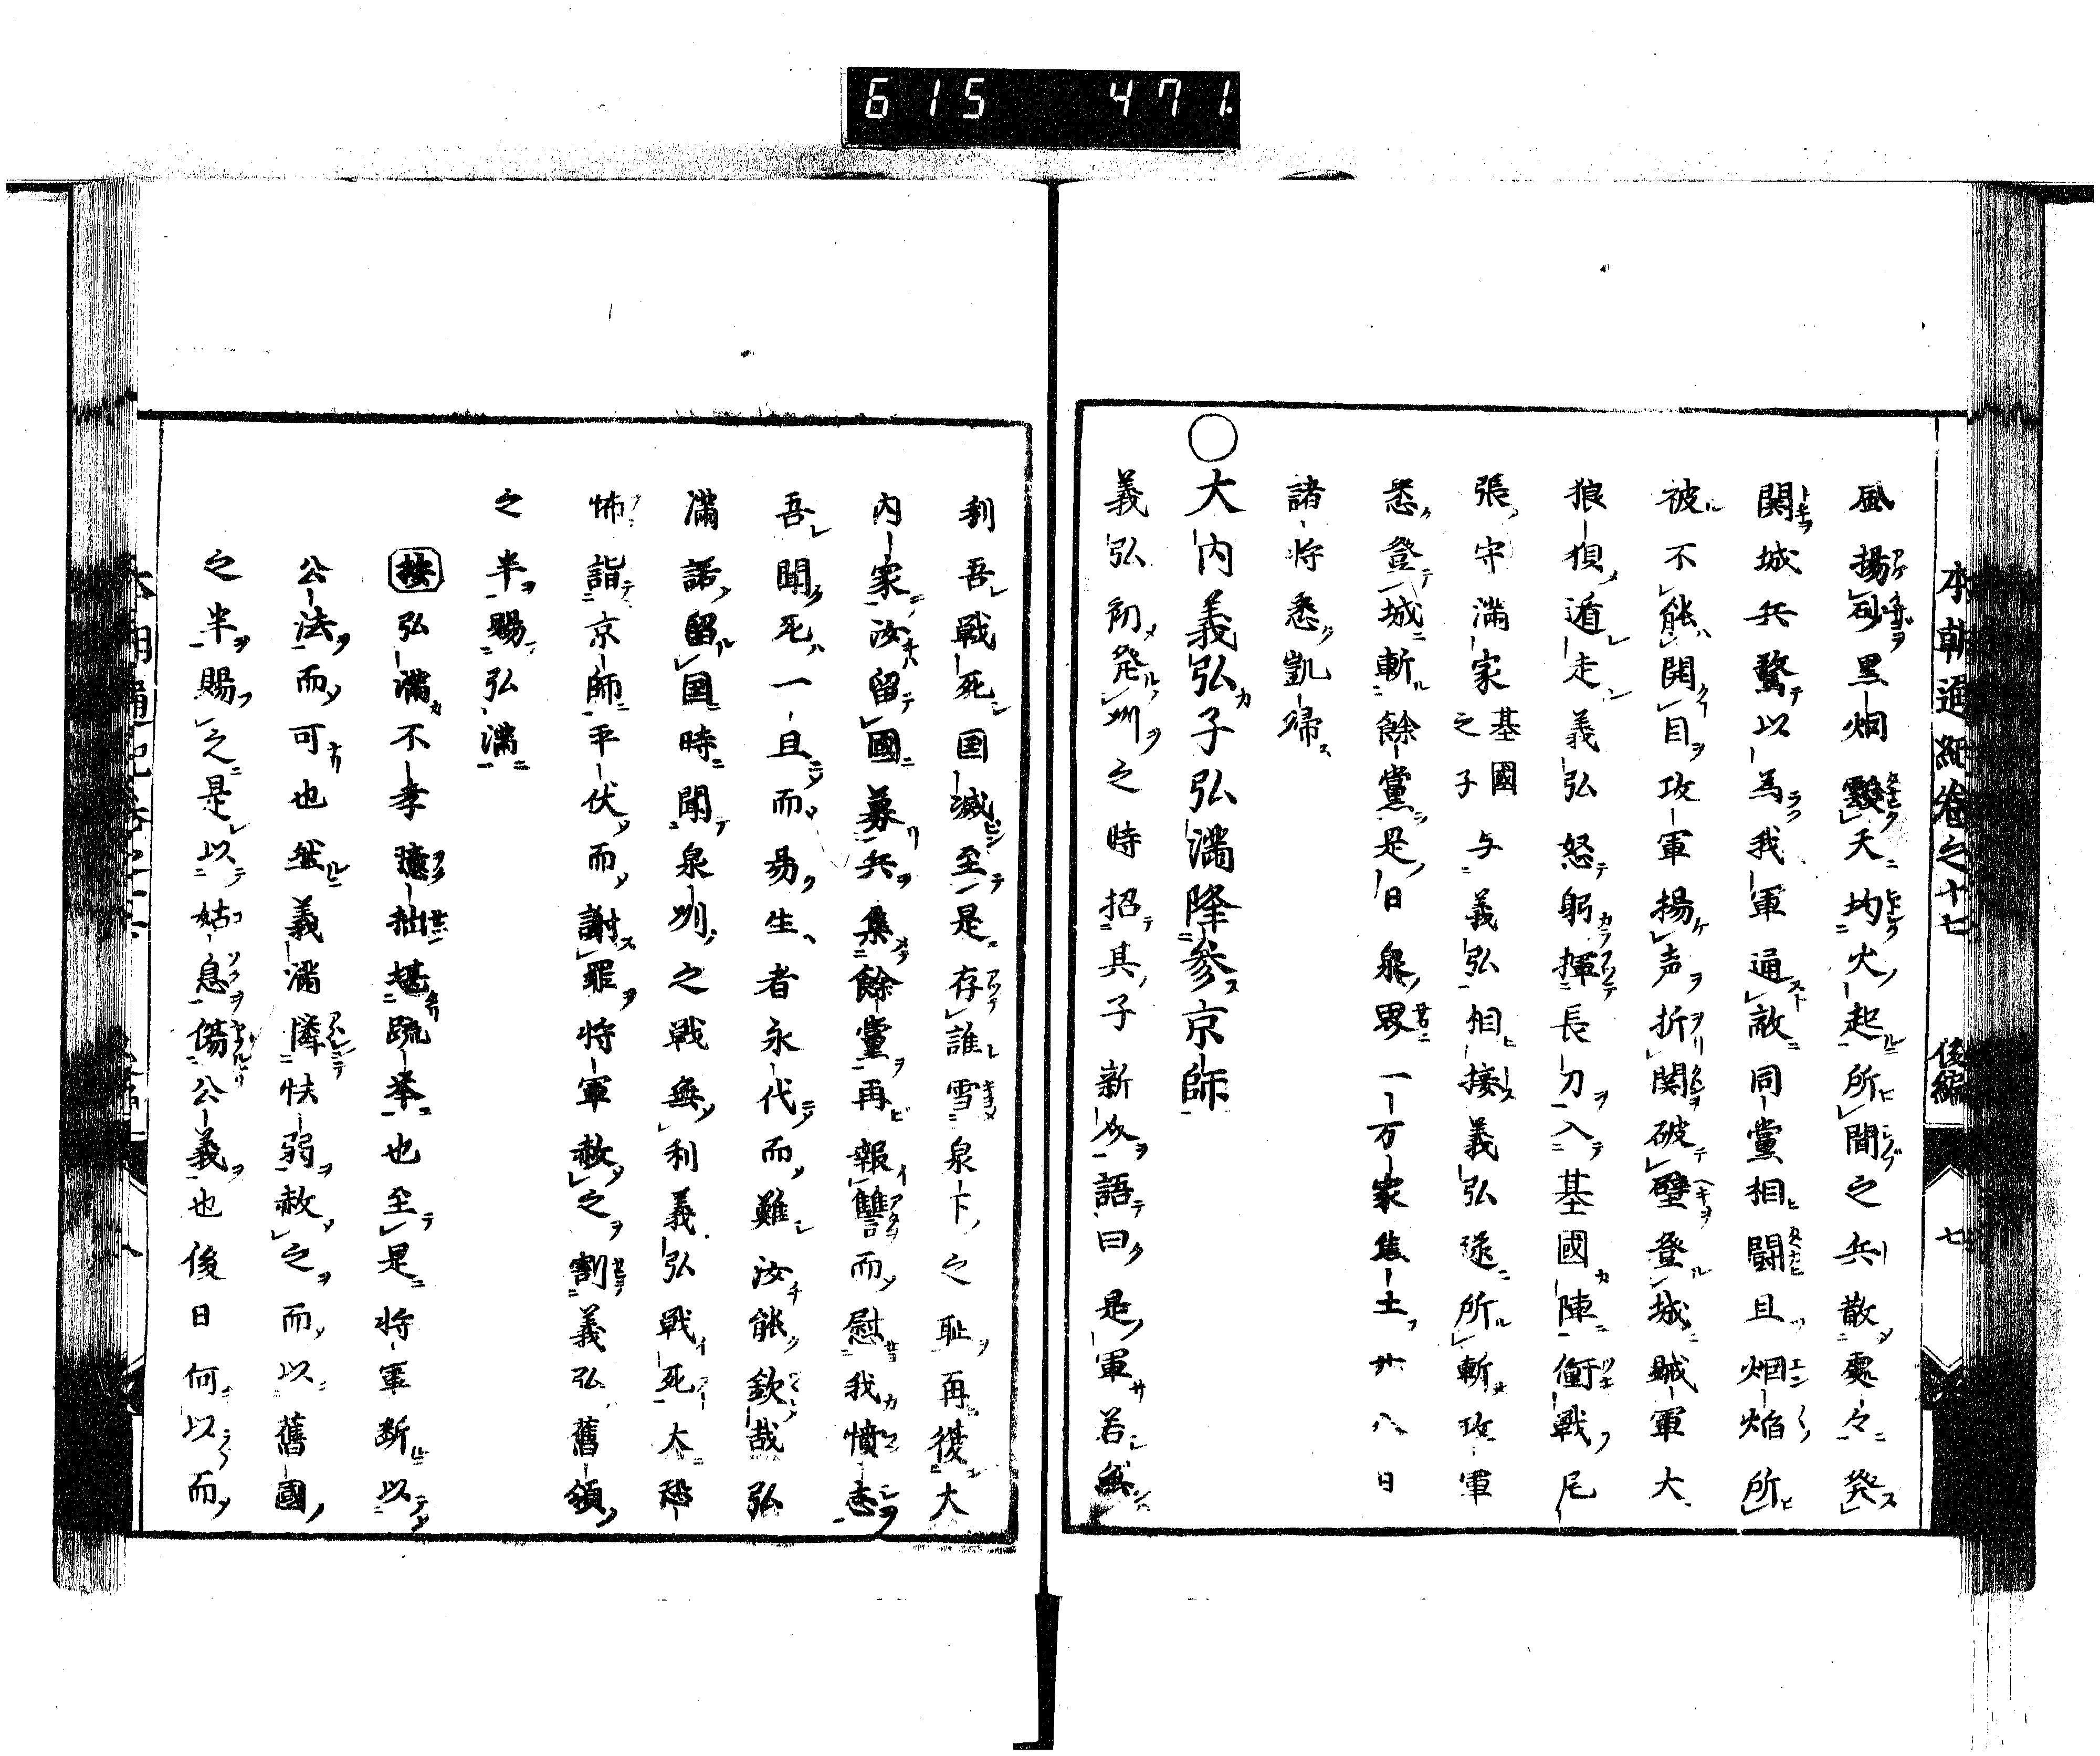 615 471
本朝通紀巻之十七 後編 七
風揚砂黒烟靉天均火起所間之兵散処々発
関城兵驚以為我軍通敵同党相闘且烟焔所
被不能開目攻軍揚声折関破壁登城賊軍大
狼狽遁走義弘怒躬揮長刀入基國陣衝戦尾
張守満家基國之子与義弘相接義弘遂所斬攻軍
悉登城斬餘黨是日泉界一万家焦土廿八日
諸将悉凱帰
○大内義弘子弘満降参京師
義弘初発州之時招其子新介語曰是軍若無
利吾戦死国滅至是存誰雪泉下之恥再復大
内家汝留國募兵集餘黨再報讐而慰我憤志
吾聞死一旦而易生者永代而難汝能欽哉弘
満諾留国時聞泉州之戦無利義弘戦死大恐
怖詣京師平伏而謝罪将軍赦之割義弘舊領
之半賜弘満
按弘満不孝臆拙堪蹠挙也至是将軍断以
公法而可也然義満憐怯弱赦之而以舊國
之半賜之是以姑息傷公義也後日何以而